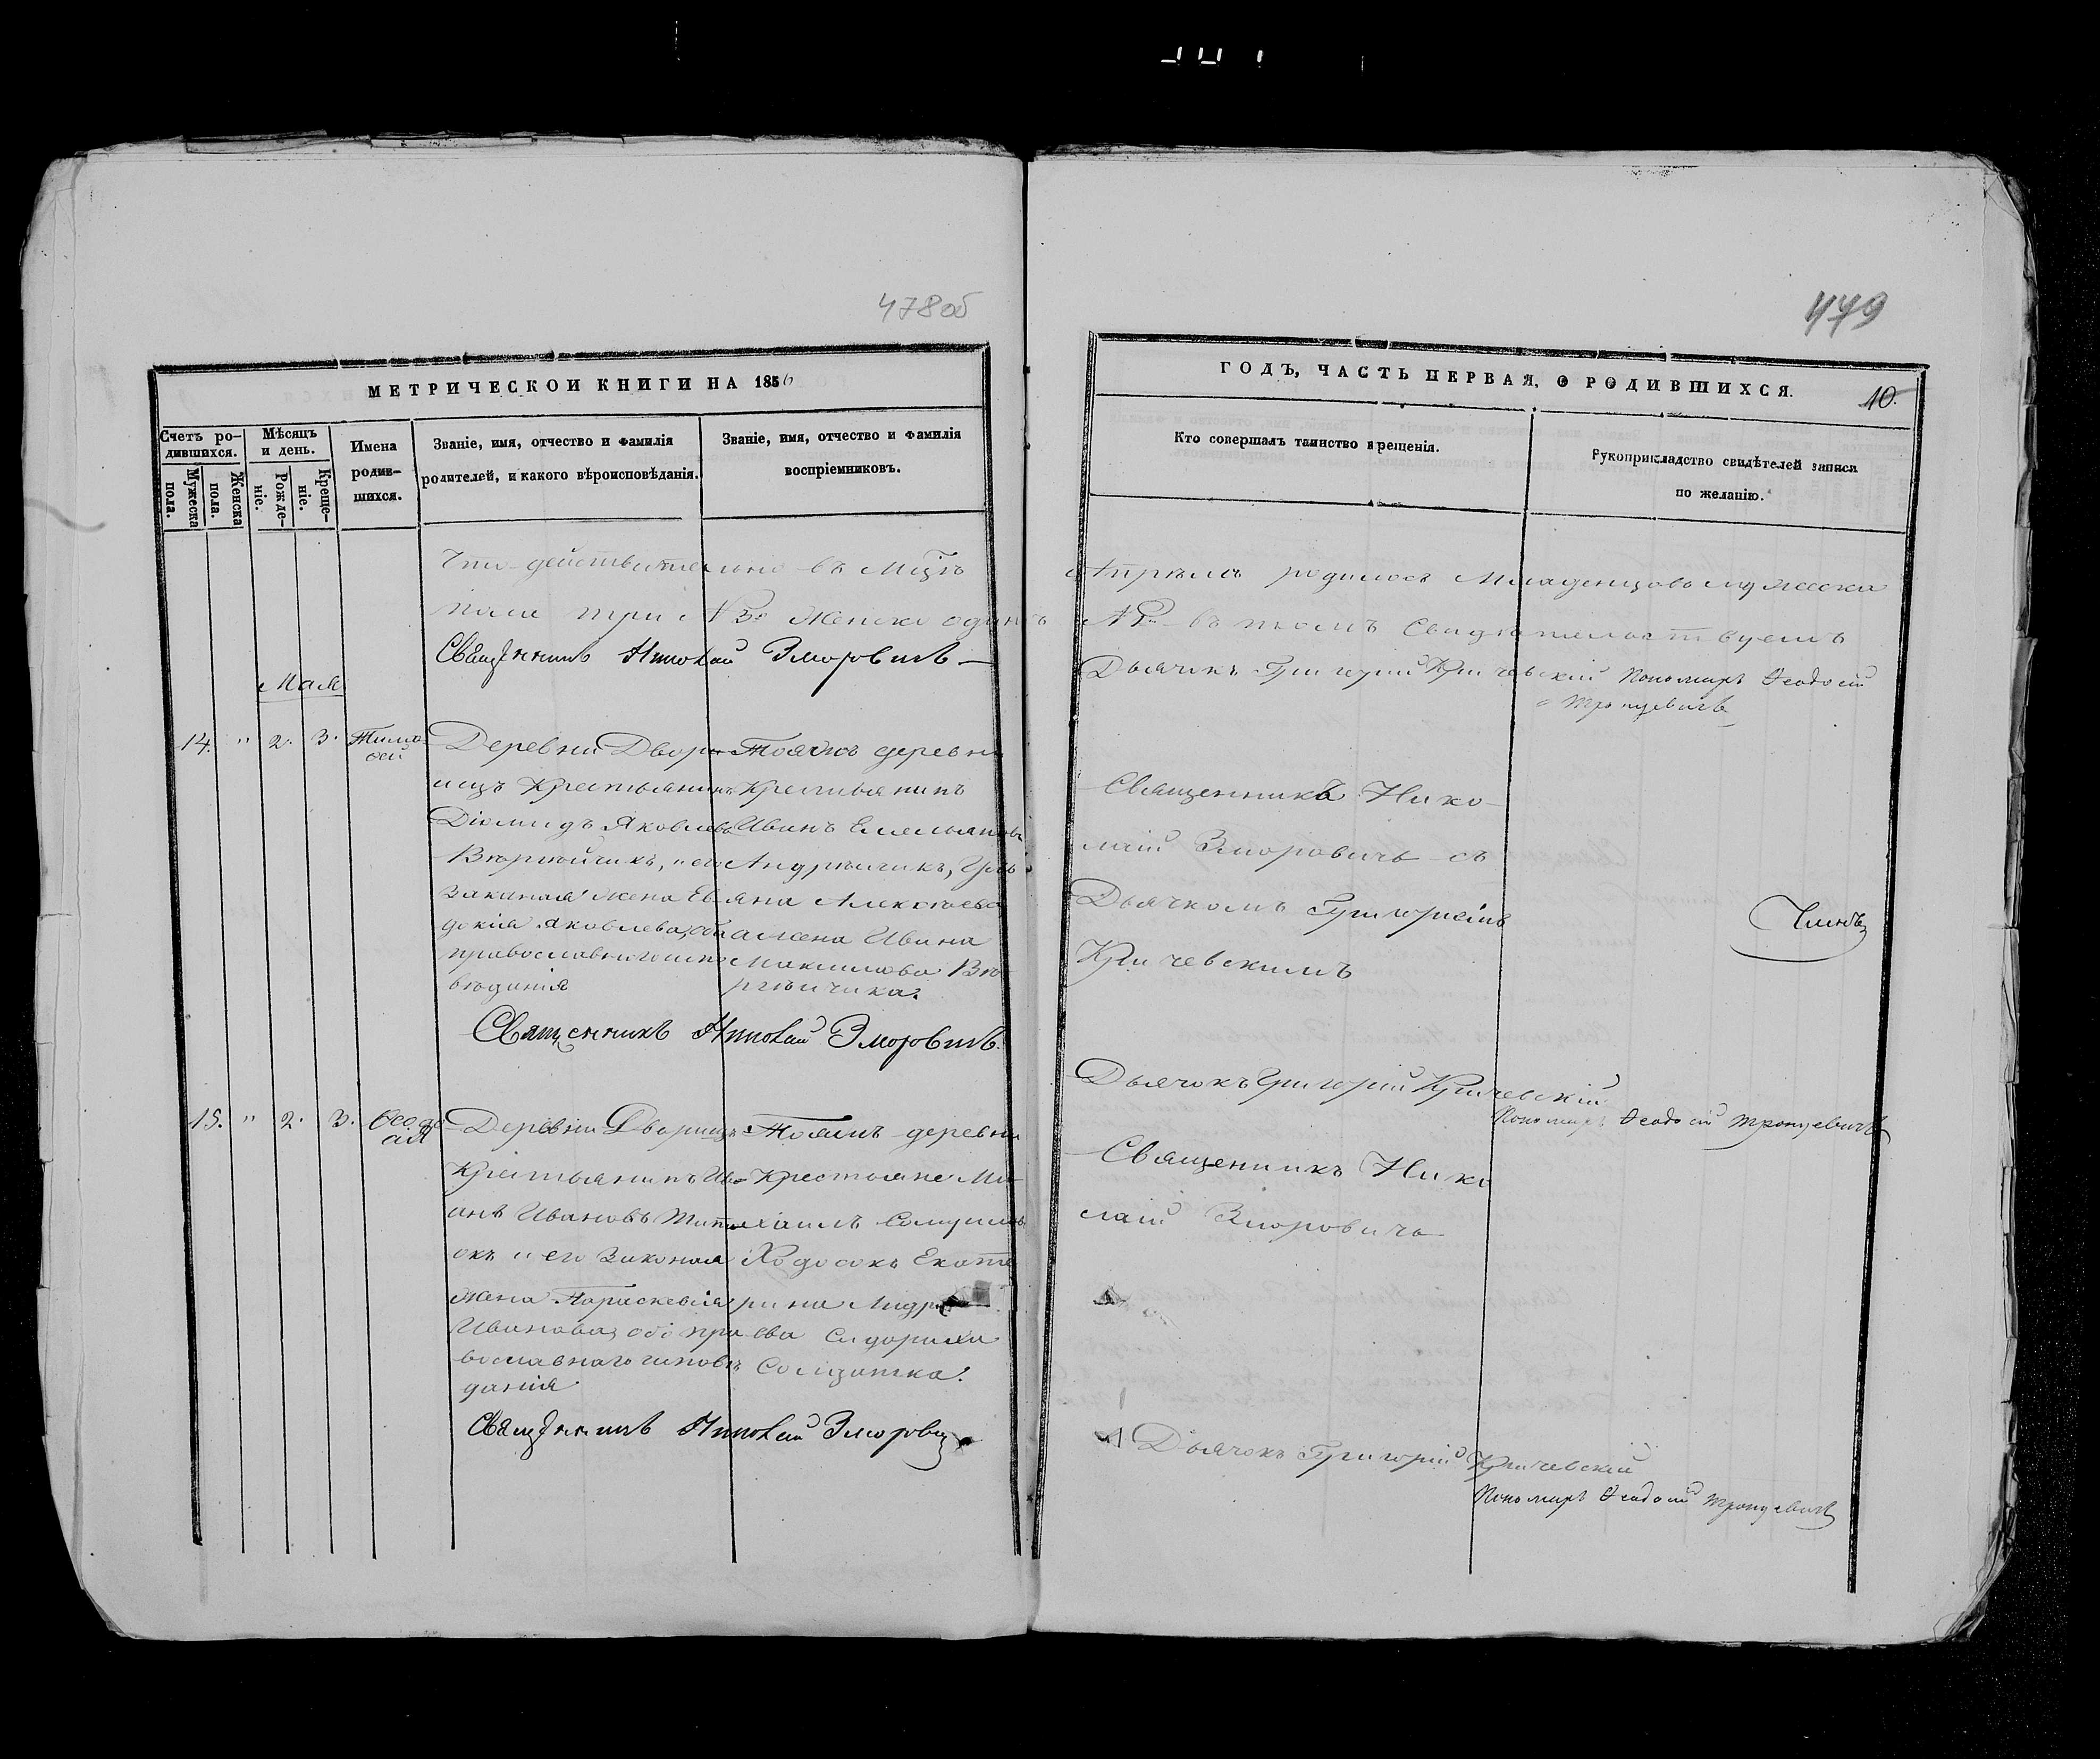 478об
479
МЕТРИЧЕСКОИ КНИГИ НА 1856
ГОДЪ, ЧАСТЬ ПЕРВАЯ, О РОДИВШИХСЯ.
10.
Счетъ ро-
дившихся.
Мужеска
пола.
Женска
пола.
Мѣсяцъ
и день.
Рожде-
ніе.
Креще-
ніе.
Имена
родив-
шихся.
Званіе, имя, отчество и фамилія
родителей, и какого вѣроисповѣданія.
Званіе, имя, отчество и фамилія
воспріемниковъ.
Кто совершалъ таинство крещенія.
Рукоприкладство свидѣтелей записи
по желанію.
Что действительно въ Мцѣ Апрѣлѣ родилось Младенцовъ мужеска
пола три №3. Женска одинъ №1. въ томъ свидѣтельствуемъ
Священникъ Николай Зморовичъ
Дьячокъ Григорій Кричевскій Пономарь Ѳеодосій
Троицевичъ
Мая
14. " 2. 3. Тимо
фей
Деревни Двори
щъ Крестьянинъ
Діомидъ Яковлевъ
и его
Законная жена Ев
докія Яковлева, оба
православнаго испо
вѣданія
Тояжъ деревни
Крестьянинъ
Иванъ Емельяновъ
Андрѣичикъ, Уль
яна Алексѣева
жена Ивана
Максимова
Священникъ Нико
лай Зморовичъ съ
Дьячкомъ Григоріемъ
Кричевскимъ
Священникъ Николай Зморовичъ.
Дьячокъ Григорій Кричевскій
Пономарь Ѳеодосій Троицевичъ
15. " 2. 3. Ѳеодо
сій
Деревни Дворищъ
Крестьянинъ Ив
анъ Ивановъ
и его Законная
жена Параскевія
Иванова, обо пра
вославнаго исповѣ
данія
Тояжъ деревни
Крестьяне Ми
хаилъ
Ходосокъ Екате
рина Андре
ева
Солдатка.
Священникъ Нико
лай Зморовичъ
Священникъ Николай Зморовичъ
Дьячокъ Григорій Кричевскій
Пономарь Ѳеодосій Троицевичъ